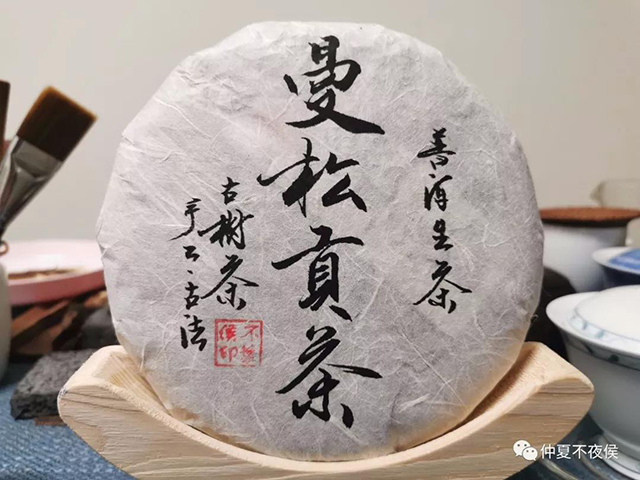 普洱生茶
曼松貢茶
古樹茶
手工·古法
不夜侯印
仲夏不夜侯